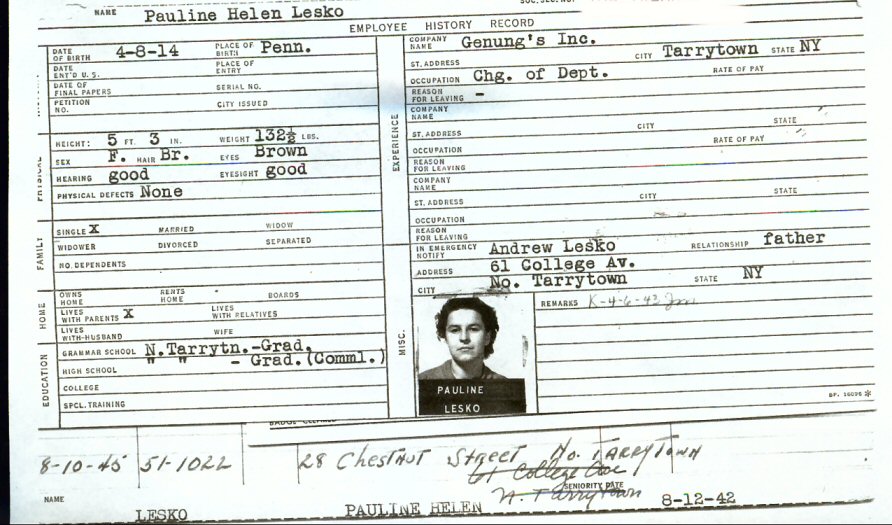 NAME Pauline Helen Lesko
EMPLOYEE HISTORY RECORD
DATE OF BIRTH 4-8-14 PLACE OF BIRTH Penn.
DATE ENT'D U. S. PLACE OF ENTRY
DATE OF FINAL PAPERS SERIAL NO.
PETITION NO. CITY ISSUED
PHYSICAL
HEIGHT: 5 FT. 3 IN. WEIGHT 132½ LBS.
SEX F. HAIR Br. EYES Brown
HEARING good EYESIGHT good
PHYSICAL DEFECTS None
FAMILY
SINGLE X MARRIED WIDOW
WIDOWER DIVORCED SEPARATED
NO. DEPENDENTS
HOME
OWNS HOME RENTS HOME BOARDS
LIVES WITH PARENTS X LIVES WITH RELATIVES
LIVES WITH-HUSBAND WIFE
EDUCATION
GRAMMAR SCHOOL N.Tarrytn.-Grad.
HIGH SCHOOL " " - Grad.(Comml.)
COLLEGE
SPCL. TRAINING
EXPERIENCE
COMPANY NAME Genung's Inc.
ST. ADDRESS CITY Tarrytown STATE NY
OCCUPATION Chg. of Dept. RATE OF PAY
REASON FOR LEAVING -
COMPANY NAME
ST. ADDRESS CITY STATE
OCCUPATION RATE OF PAY
REASON FOR LEAVING
COMPANY NAME
ST. ADDRESS CITY STATE
OCCUPATION
REASON FOR LEAVING
MISC.
IN EMERGENCY NOTIFY Andrew Lesko RELATIONSHIP father
ADDRESS 61 College Av.
CITY No. Tarrytown STATE NY
REMARKS K-4-6-43
PAULINE
LESKO
8-10-45 51-1022 28 Chestnut Street No. TARRYTOWN
61 College Ave
N. Tarrytown
SENIORITY DATE
NAME LESKO PAULINE HELEN 8-12-42